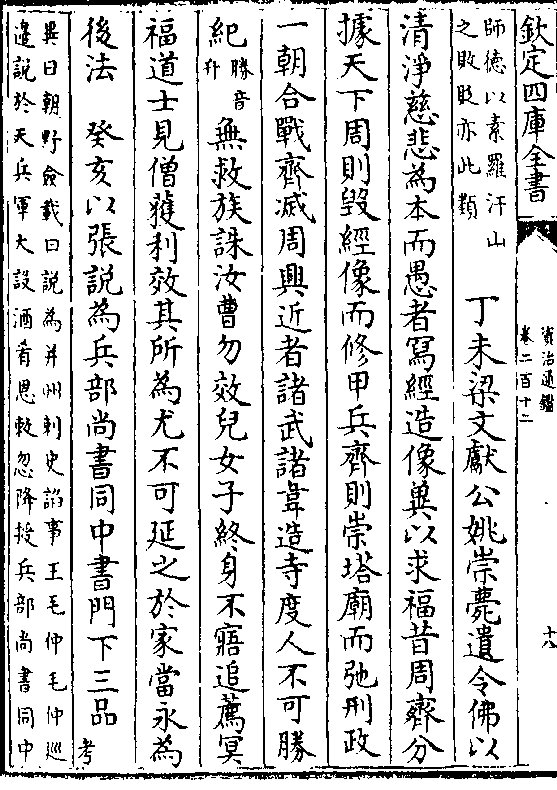 欽定四庫全書
資治通鑑
卷二百十二
十六
師徳以素羅汗山
之敗貶亦此類
丁未梁文獻公姚崇薨遺令佛以
清淨慈悲為本而愚者寫經造像冀以求福昔周齊分
據天下周則毀經像而修甲兵齊則崇塔廟而弛刑政
一朝合戰齊滅周興近者諸武諸韋造寺度人不可勝
紀
勝音
升
無救族誅汝曹勿效兒女子終身不寤追薦冥
福道士見僧獲利效其所為尤不可延之於家當永為
後法 癸亥以張説為兵部尚書同中書門下三品
考
異曰朝野僉載曰説為并州刺史諂事王毛仲毛仲巡
邉説於天兵軍大設酒肴恩敕忽降授兵部尚書同中